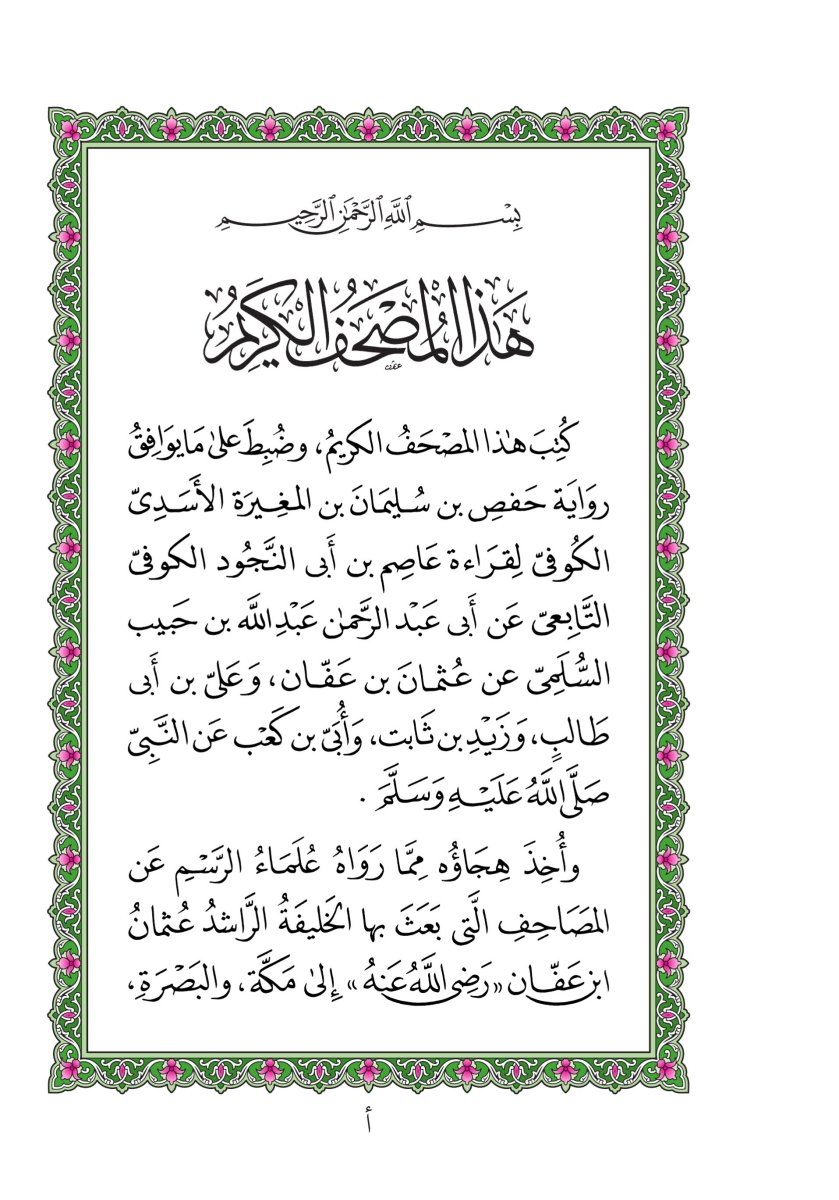 بِسْمِ ٱللَّهِ ٱلرَّحْمَٰنِ ٱلرَّحِيمِ
هَٰذَا الْمُصْحَفُ الْكَرِيمُ
كُتِبَ هٰذا المصْحَفُ الكريمُ، وضُبِطَ علىٰ مَا يوَافِقُ
روَايَة حَفصِ بن سُليمَانَ بن المغِيرَة الأَسَدِىّ
الكُوفىّ لِقرَاءة عَاصِم بن أَبى النَّجُود الكوفىّ
التَّابِعىّ عَن أَبى عَبْد الرَّحمٰن عَبْدِ اللَّه بن حَبِيب
السُّلَمِىّ عن عُثمانَ بن عَفّان، وَعَلىّ بن أَبى
طَالبٍ، وَزَيْدِ بن ثَابت، وَأُبَىّ بن كَعْب عَن النَّبِىّ
صَلَّى اللَّهُ عَلَيْهِ وَسَلَّمَ .
وأُخِذَ هِجَاؤُه مِمَّا رَوَاهُ عُلَمَاءُ الرَّسْمِ عَن
المصَاحِفِ الَّتى بَعَثَ بها الخَليفَةُ الرَّاشدُ عُثمانُ
ابن عَفّان «رَضِى اللَّهُ عَنهُ» إِلىٰ مَكَّةَ، والبَصْرَةِ،
أ